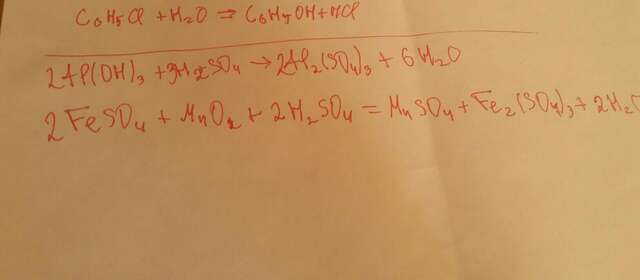 C6H5Cl + H2O ⇒ C6H5OH + HCl
2Al(OH)3 + 3H2SO4 → 2Al2(SO4)3 + 6H2O
2FeSO4 + MnO2 + 2H2SO4 = MnSO4 + Fe2(SO4)3 + 2H2